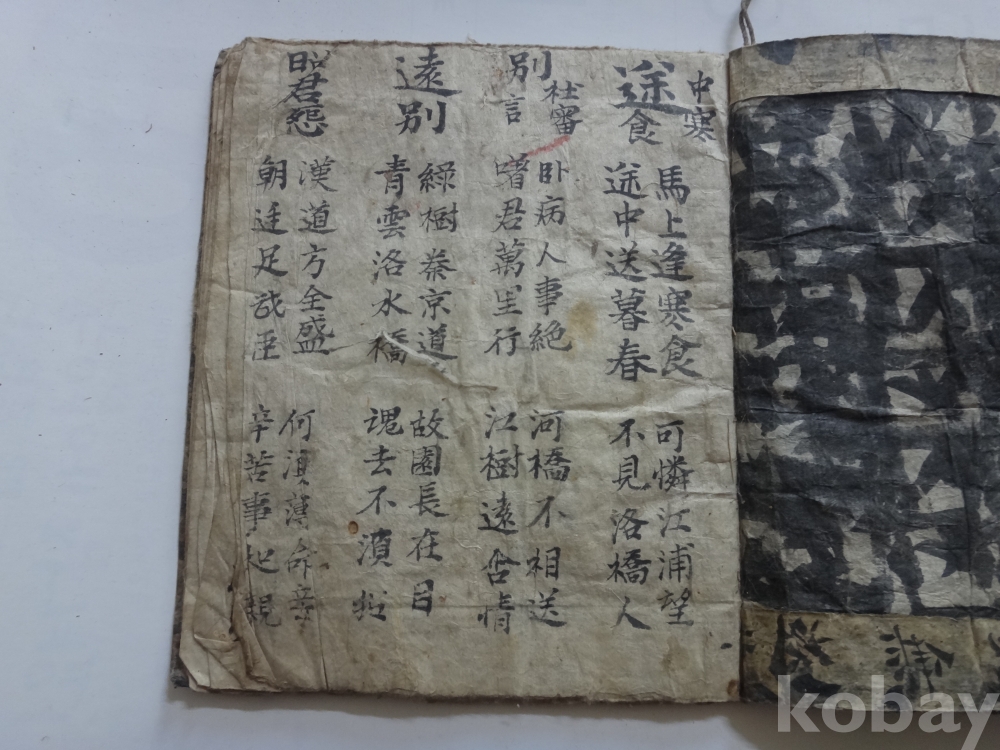 途中寒食
馬上逢寒食
途中送暮春
可憐江浦望
不見洛橋人
別社審言
卧病人事絶
君萬里行
河橋不相送
江樹遠含情
遠別
綠樹秦京道
青雲洛水橋
故園長在目
魂去不湏招
昭君怨
漢道方全盛
朝廷足武臣
何湏薄命妾
辛苦事和親
kobay